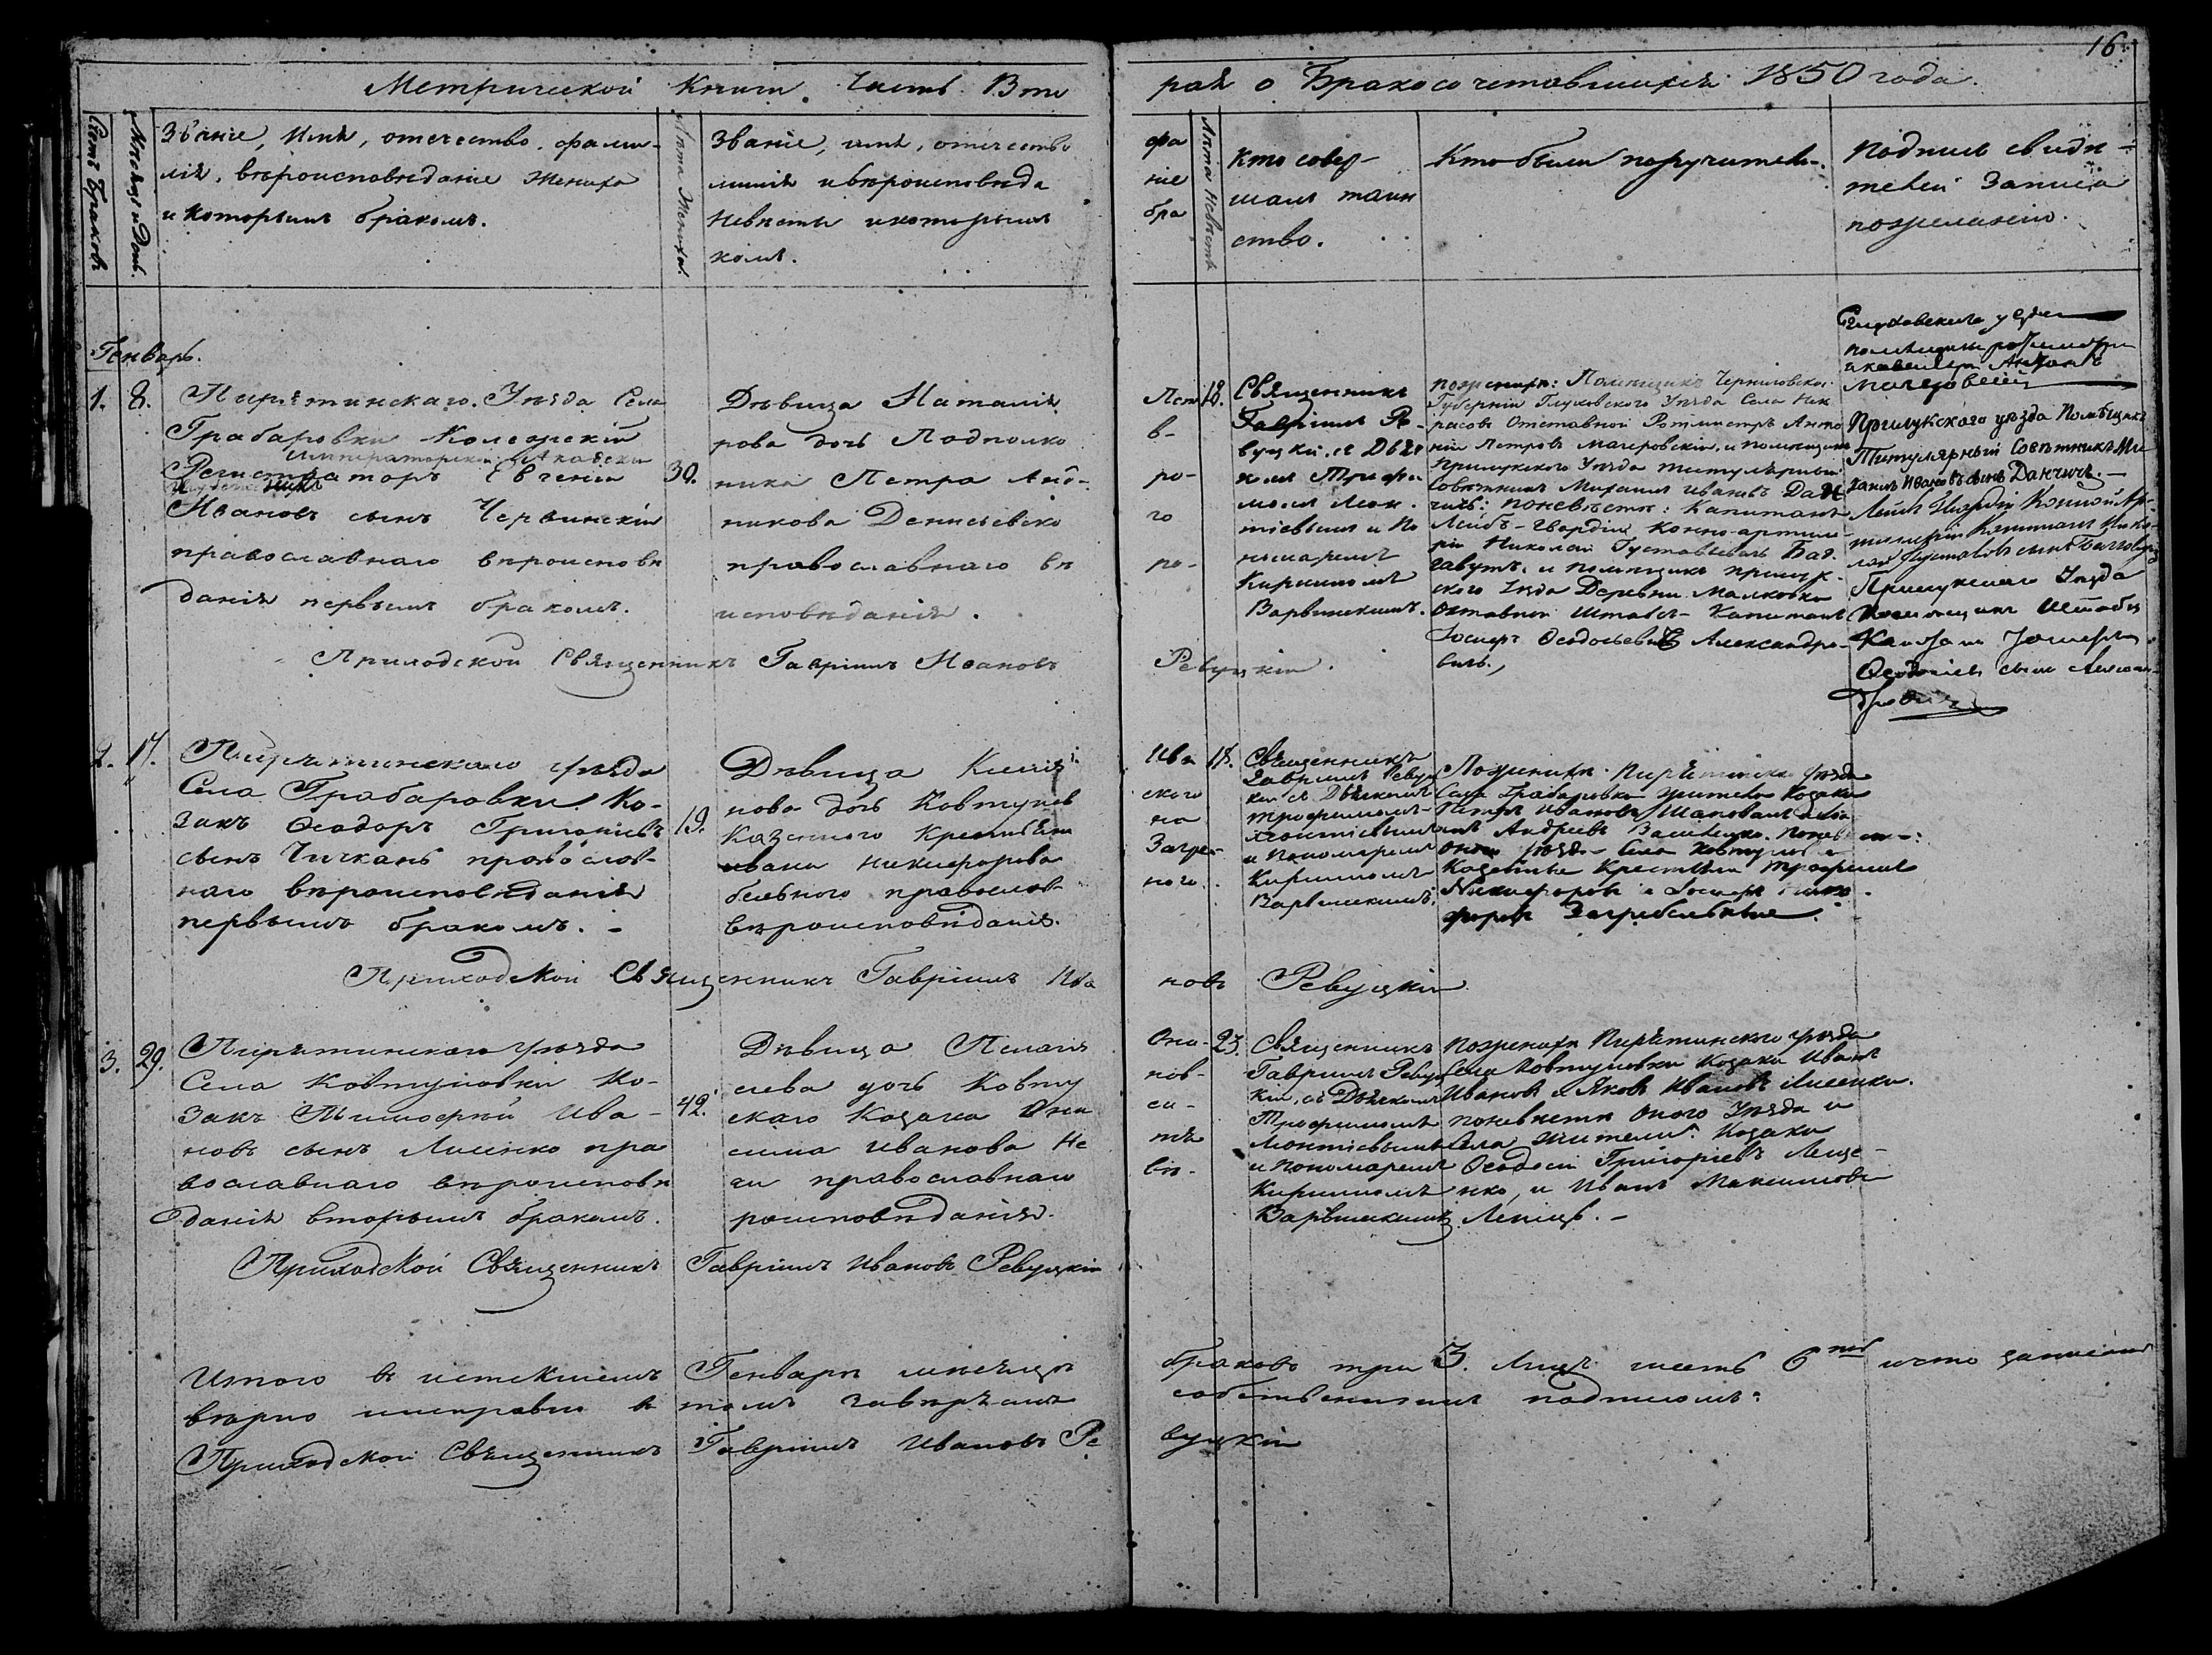 16.
Метрической Книги. Часть Вто
рая о Бракосочетавшихся 1850 года.
Счетъ Браковъ
Месяцъ и День.
Званіе, Имя, отечество, фами-
лія, вѣроисповѣданіе Жениха
и которымъ бракомъ.
Лѣта Жениха.
Званіе, имя, отечество
милія и вѣроисповѣда
Невѣсты и которымъ
комъ.
фа
ніе
бра
Лѣта Невѣсты
Кто совер-
шалъ таин
ство.
Кто были поручители.
Подпись свидѣ-
телей Записи
по желанію.
Генварь.
1. 8.
Пирятинскаго Уѣзда Села
Грабаровки Колежскій
Императорской Академіи
Регистраторъ Евгеній
Ивановъ сынъ Червинскій
православнаго вѣроисповѣ
данія первымъ бракомъ.
30.
Дѣвица Наталія
рова дочь Подполко
ника Петра Анд-
никова Денисьевско
православнаго вѣ
исповѣданія.
Пет
в-
ро-
го
ро-
18.
Священникъ
Гавріилъ Ре-
вуцкій, съ Дья
комъ Трофи
момъ Леон-
тіевымъ и По
номаремъ
Кирииломъ
Варвинскимъ.
по женихѣ: Помѣщикъ Черниговской
Губерніи Глуховского Уѣзда Села Нек
расова Отставной Ротмистръ Анто
ній Петровъ Мачеровскій, и помѣщикъ
Прилукского Уѣзда титулярный
Совѣтникъ Михаилъ Ивановъ Дан
чичъ: по невѣстѣ: Капитанъ
Лейбъ-Гвардіи Конно-артиле
ріи Николай Густавьевъ Баг-
гавутъ, и помѣщикъ прилук-
ского Уѣзда Деревни Малковки
Отставной Штабсъ-Капитанъ
Іосифъ Ѳеодосьевичъ Александро-
вичъ,
Глуховского уезда
помещикъ ротмистръ
и кавалеръ Антонъ
Мачеровскій
Прилукскаго уѣзда Помѣщикъ
Титулярный Совѣтникъ Ми
хаилъ Ивановъ сынъ Данчичъ.
Лейбъ Гвардіи Конной Ар-
тиллеріи Капитанъ Нико-
лай Густавовъ сынъ Багговутъ
Прилукскаго Уезда
Помещикъ Штабсъ
Капитанъ Іосифъ
Ѳеодосіевъ сынъ Алексан-
дровичъ
Приходской Священникъ Гавріилъ Ивановъ
Ревуцкій.
2. 17.
Пирятинскаго уѣзда
Села Грабаровки Ко-
закъ Ѳеодоръ Григоріевъ
сынъ Чичканъ православ-
наго вѣроисповѣданія
первымъ бракомъ.
19.
Дѣвица
нова дочь Ковтунов
Казенного Крестьяни
Ивана Никифорова
бельного православ
вѣроисповѣданія.
Ива
ского
на
Загре-
ного
18.
Священникъ
Гавріилъ Ревуц
кій съ Дьякомъ
Трофимомъ
Леонтіевымъ
и Пономаремъ
Кирииломъ
Варвинскимъ.
По женихѣ: Пирятинско уѣзда
Села Грабаровки жители Козаки
Петръ Ивановъ Шаповалъ
Андреевъ по невѣстѣ:
оного уѣзда Села Ковтунов
Казенные Крестьяни Трофимъ
Никифоровъ и Іосифъ Ники-
форовъ Загребельные.
Приходской Священникъ Гавріилъ Ива
новъ Ревуцкій
3. 29.
Пирятинскаго уѣзда
Села Ковтуновки Ко-
закъ Тимофей Ива-
новъ сынъ Лисенко пра
вославнаго вѣроисповѣ
данія вторымъ бракомъ.
42.
Дѣвица Пелагія
сиева дочь Ковту
скаго Козака Они
сима Иванова Не
ги православнаго
роисповѣданія.
Они-
нов-
си-
тя
вѣ-
23.
Священникъ
Гавріилъ Ревуц
кій, съ Дьякомъ
Трофимомъ
Леонтіевымъ
и Пономаремъ
Кирииломъ
Варвинскимъ
по женихѣ Пирятинского уѣзда
Села Ковтуновки Козаки Иванъ
Ивановъ и Яковъ Ивановъ Лисенки.
по невѣстѣ оного Уѣзда и
Села жители: Козаки
Ѳеодосій Григоріевъ Леще-
нко, и Иванъ Максимовъ
Приходской Священникъ Гавріилъ Ивановъ Ревуцкій
Итого въ истекшемъ Генварѣ мѣсяцѣ
браковъ три 3. Лицъ шесть 6 что записано
вѣрно и исправно въ томъ завѣряемъ
собственнымъ подписомъ:
Приходской Священникъ Гавріилъ Ивановъ Ре
вуцкій